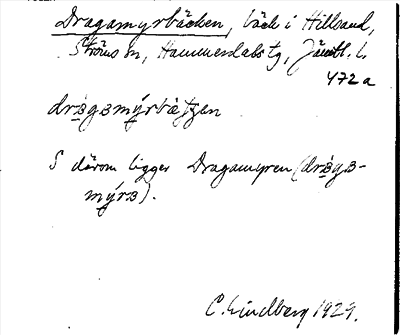 Dragamyrbäcken, bäck i Hillsand,
Ströms sn, Hammerdals tg, Jämtl. l.
472a
drɜ̀gɜmýrbætʃen
S därom ligger Dragamyren (drɜ̀gɜ-
mýrɜ).
C. Lindberg 1929.